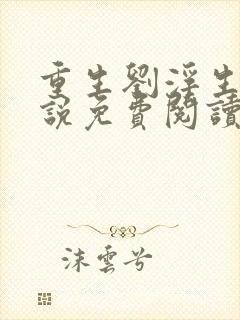 重生劉淫生
說免費閱讀
沫雲兮